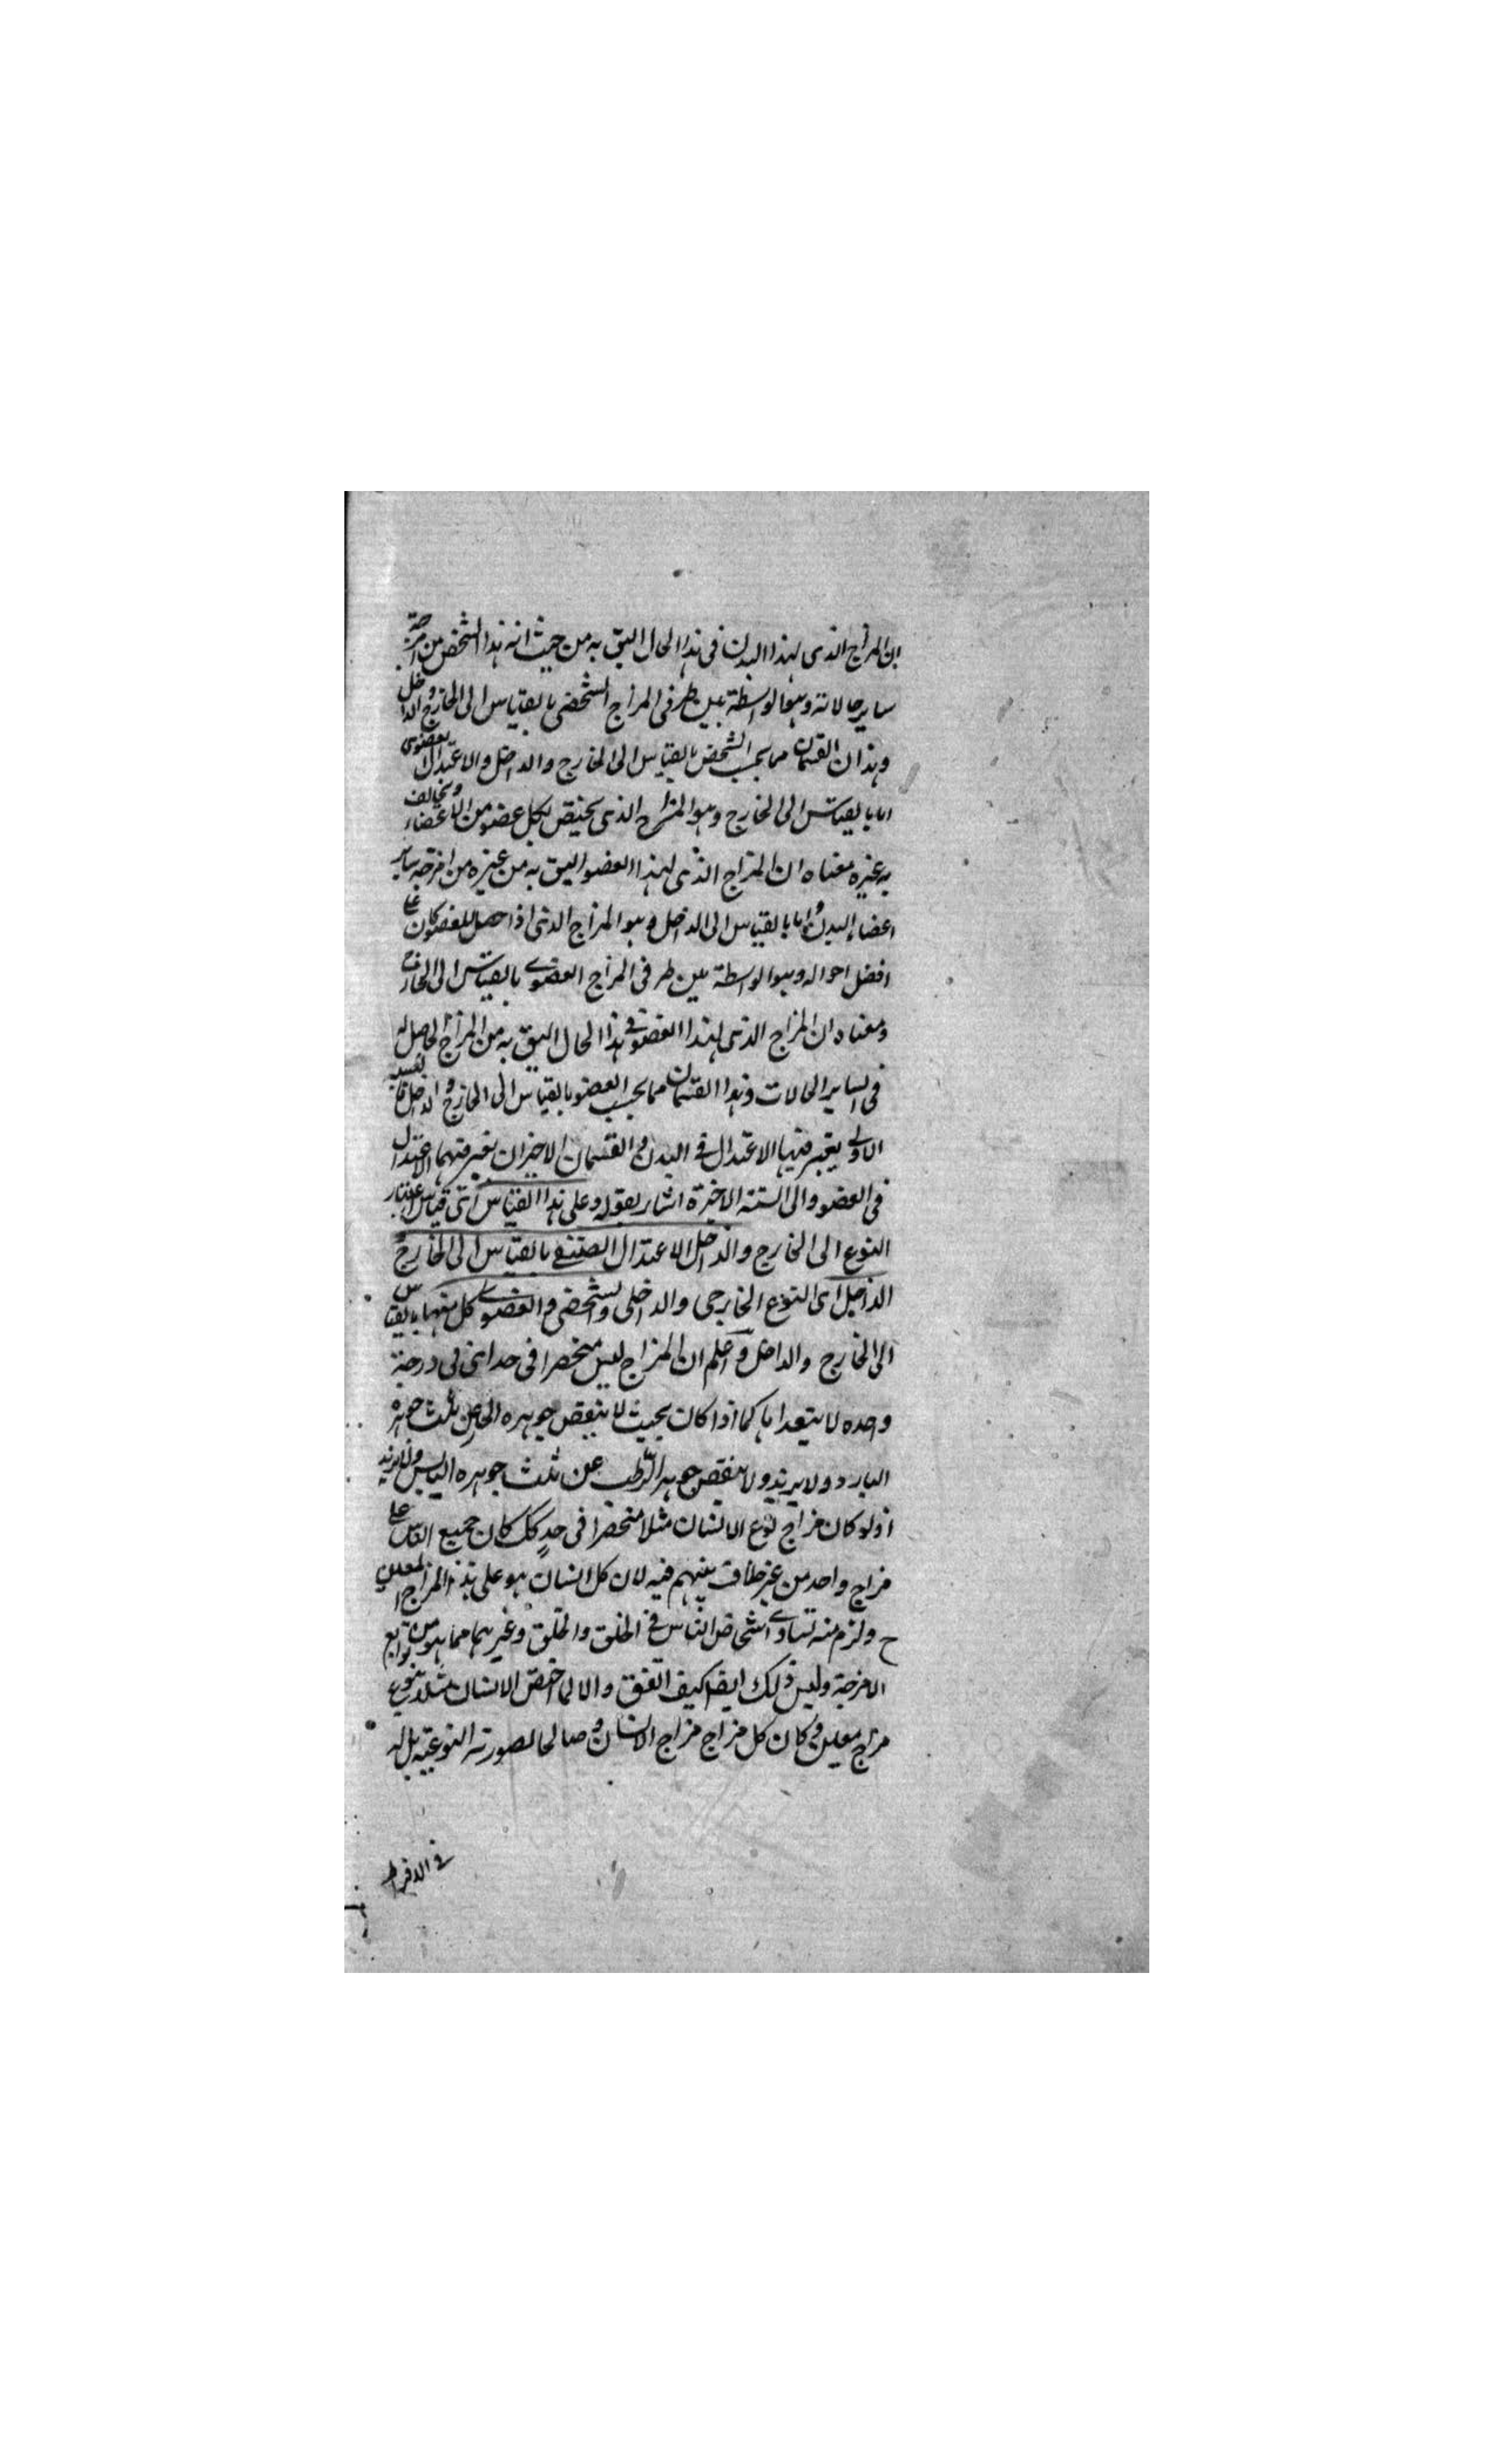 ان المزاج الذى لهذا البدن فى هذا الحال اليق به من حيث انه هذا الشخص من امزجة
ساير حالاته وهو الواسطة بين طرفى المزاج الشخصى بالقياس الى الخارج والداخل
وهذان القسمان مما بحسب الشخص بالقياس الى الخارج والداخل والاعتدال العضوى
اما بالقياس الى الخارج وهو المزاج الذى يختص لكل عضو من الاعضاء ويخالف
به غيره معناه ان المزاج الذى لهذا العضو اليق به من غيره من امزجه ساير
اعضاء البدن واما بالقياس الى الداخل وهو المزاج الذى اذا حصل للعضو كان على
افضل احواله وهو الواسطة بين طرفى المزاج العضوى بالقياس الى الخارج
ومعناه ان المزاج الذى لهذا العضو فى هذا الحال اليق به من المزاج الحاصل له
فى الساير الحالات وهذا القسمان مما بحسب العضو بالقياس الى الخارج والداخل
الاولى يعتبر فيها الاعتدال فى البدن والقسمان الاخيران يعتبر فيهما الاعتدال
فى العضو والى الستة الاخيرة اشار بقوله وعلى هذا القياس اى قياس اعتبار
النوع الى الخارج والداخل الاعتدال الصنفى بالقياس الى الخارج و
الداخل اى النوع الخارجى والداخلى والشخصى والعضوى كل منهما بالقياس
الى الخارج والداخل واعلم ان المزاج ليس منحصرا فى حد اى فى درجة
واحده لا يتعداها كما اذا كان بحيث لا ينقص جوهره الحار عن ثلث جوهره
البارد ولا يزيد ولا ينقص جوهر الرطب عن ثلث جوهره اليابس ولا يزيد
اذ لو كان مزاج نوع الانسان مثلا منحصرا فى حد كك كان جميع الناس على
مزاج واحد من غير خلاف بينهم فيه لان كل انسان هو على هذا المزاج المعين
ح ولزم منه تساوى اشخاص الناس فى الخلق والخلق وغيرهما مما هو من توابع
الامزجة وليس ذلك ايضا كيف اتفق والا لما اختص الانسان مثلا بنوع
مزاج معين وكان كل مزاج مزاج الانسان وصالحا لصورته النوعية بل له
فى الافراط